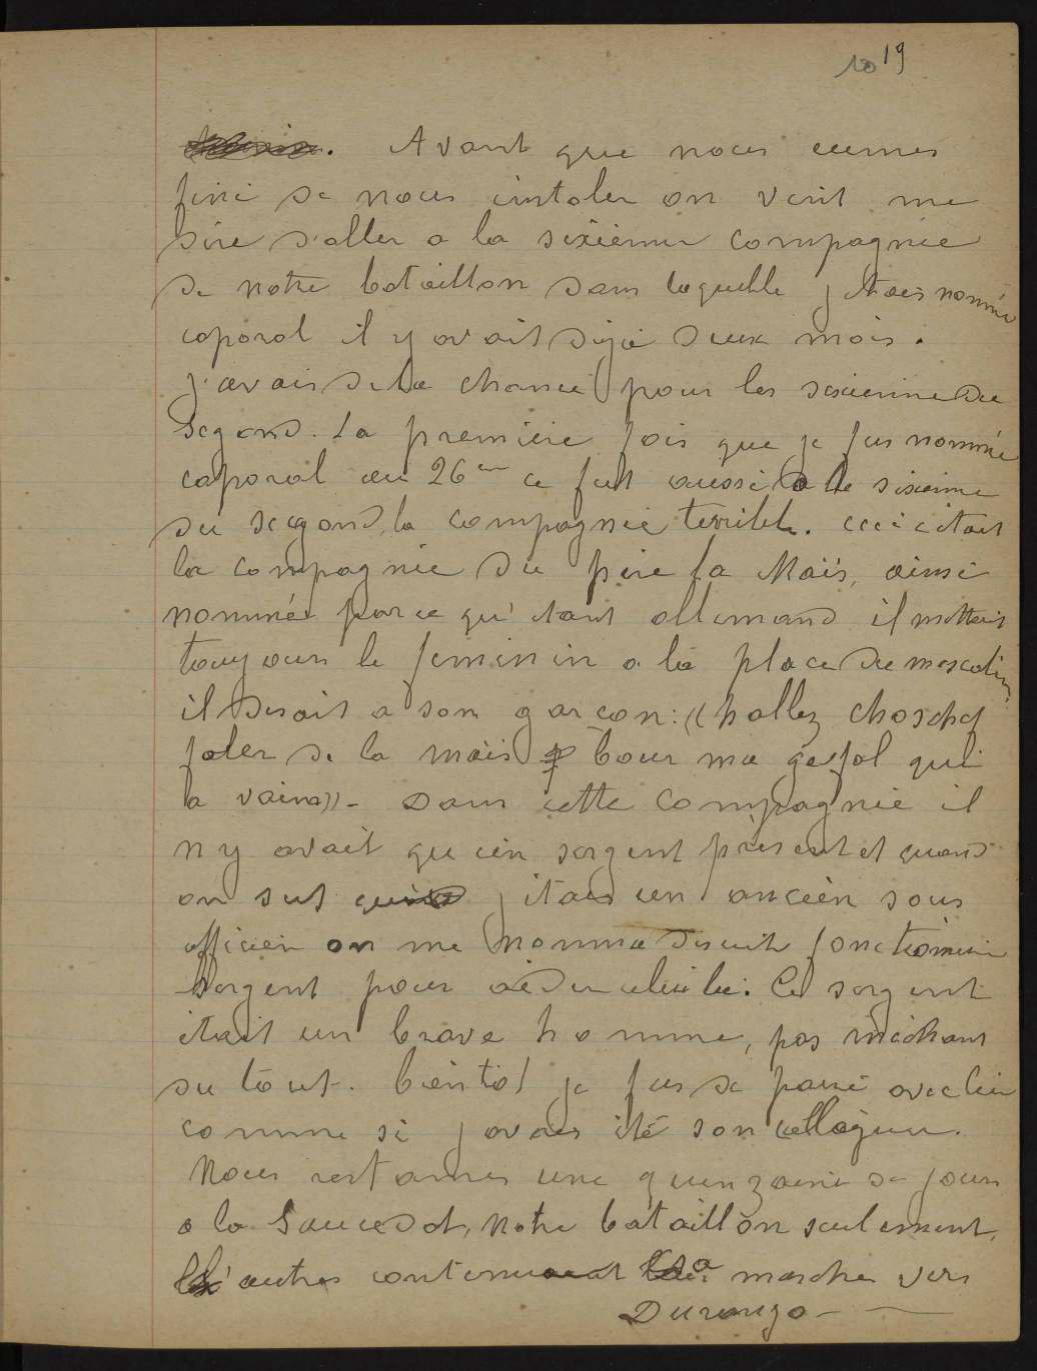 10 19
. Avant que nous eumes
fini de nous instaler on vint me
dire d'aller a la sixieme compagnie
de notre bataillon dans laquelle j etais nommé
caporal il y avait deja deux mois.
J'avais de la chance pour les sixieme du
segond. La premiere fois que je fus nommé
caporal au 26em ce fut aussi a la sixieme
du segond, la compagnie terrible. ceci c etait
la compagnie du pere la Maïs, ainsi
nommée parce qu'etant allemand il mettait
toujours le feminin a la place du masculin
il disait a son garçon: «hallez choscha
faler de la maïs bour ma gefal qui
a vaim» - Dans cette compagnie il
n y avait qu un sergent present et quand
on sut que j etais un ancien sous
officier on me nomma desuite fonctionnaire
sergent pour aider celui la. Ce sergent
etait un brave homme, pas méchant
du tout. bientot je fus de pair avec lui
comme si j avais été son collègue.
Nous restames une quinzaine de jours
a la Sauceda, notre bataillon seulement,
les autres continuant la marche vers
Durango -